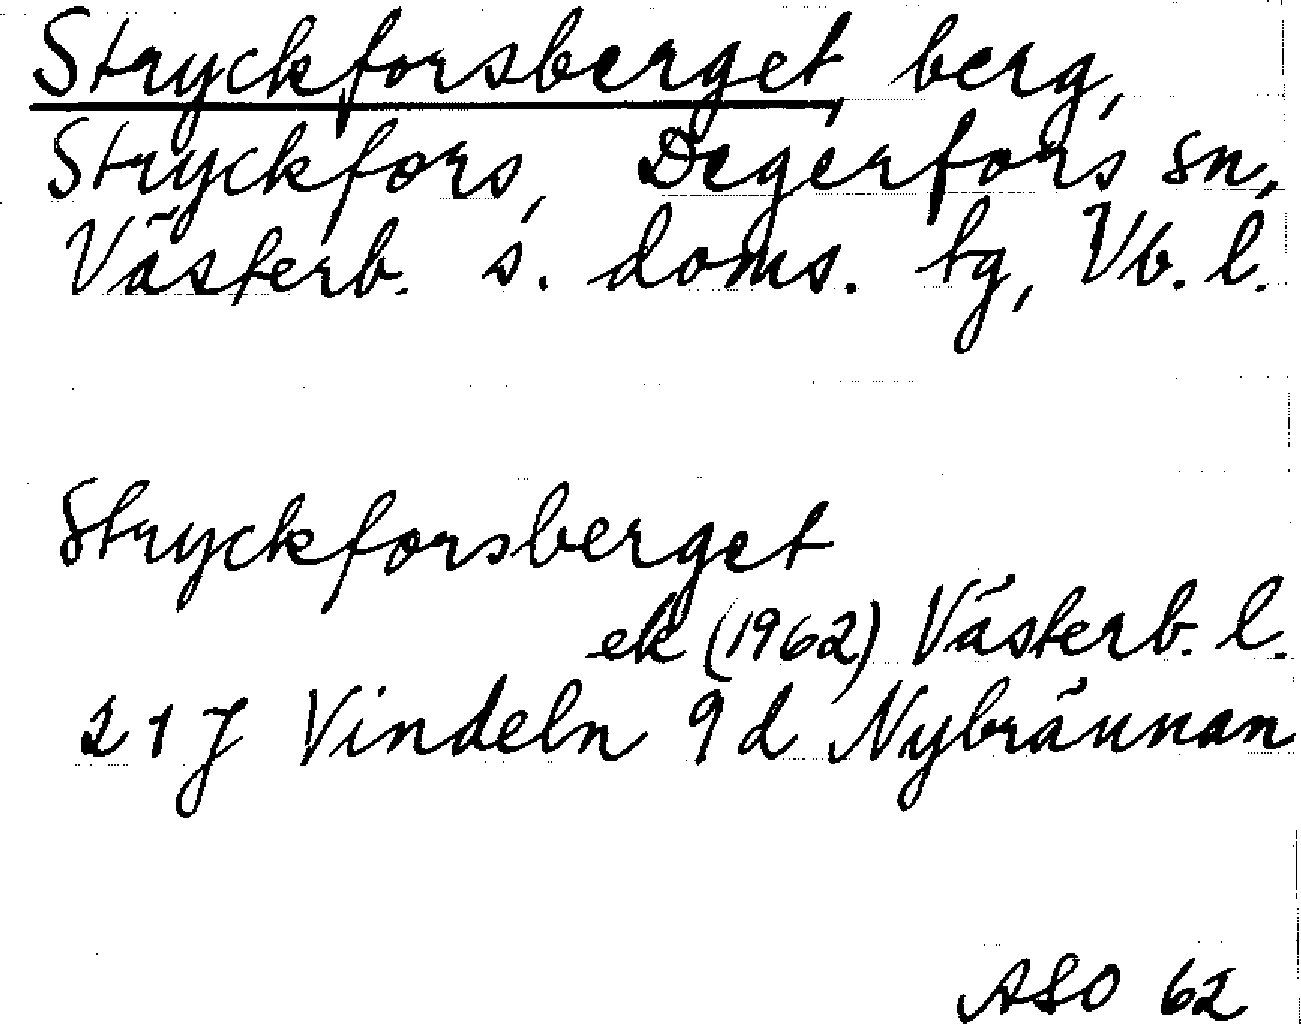 Stryckforsberget, berg,
Stryckfors, Degerfors sn,
Västerb. s. doms. tg, Vb. l.
Stryckforsberget
ek (1962) Västerb. l.
21 J Vindeln 9d Nybrännan
ASO 62